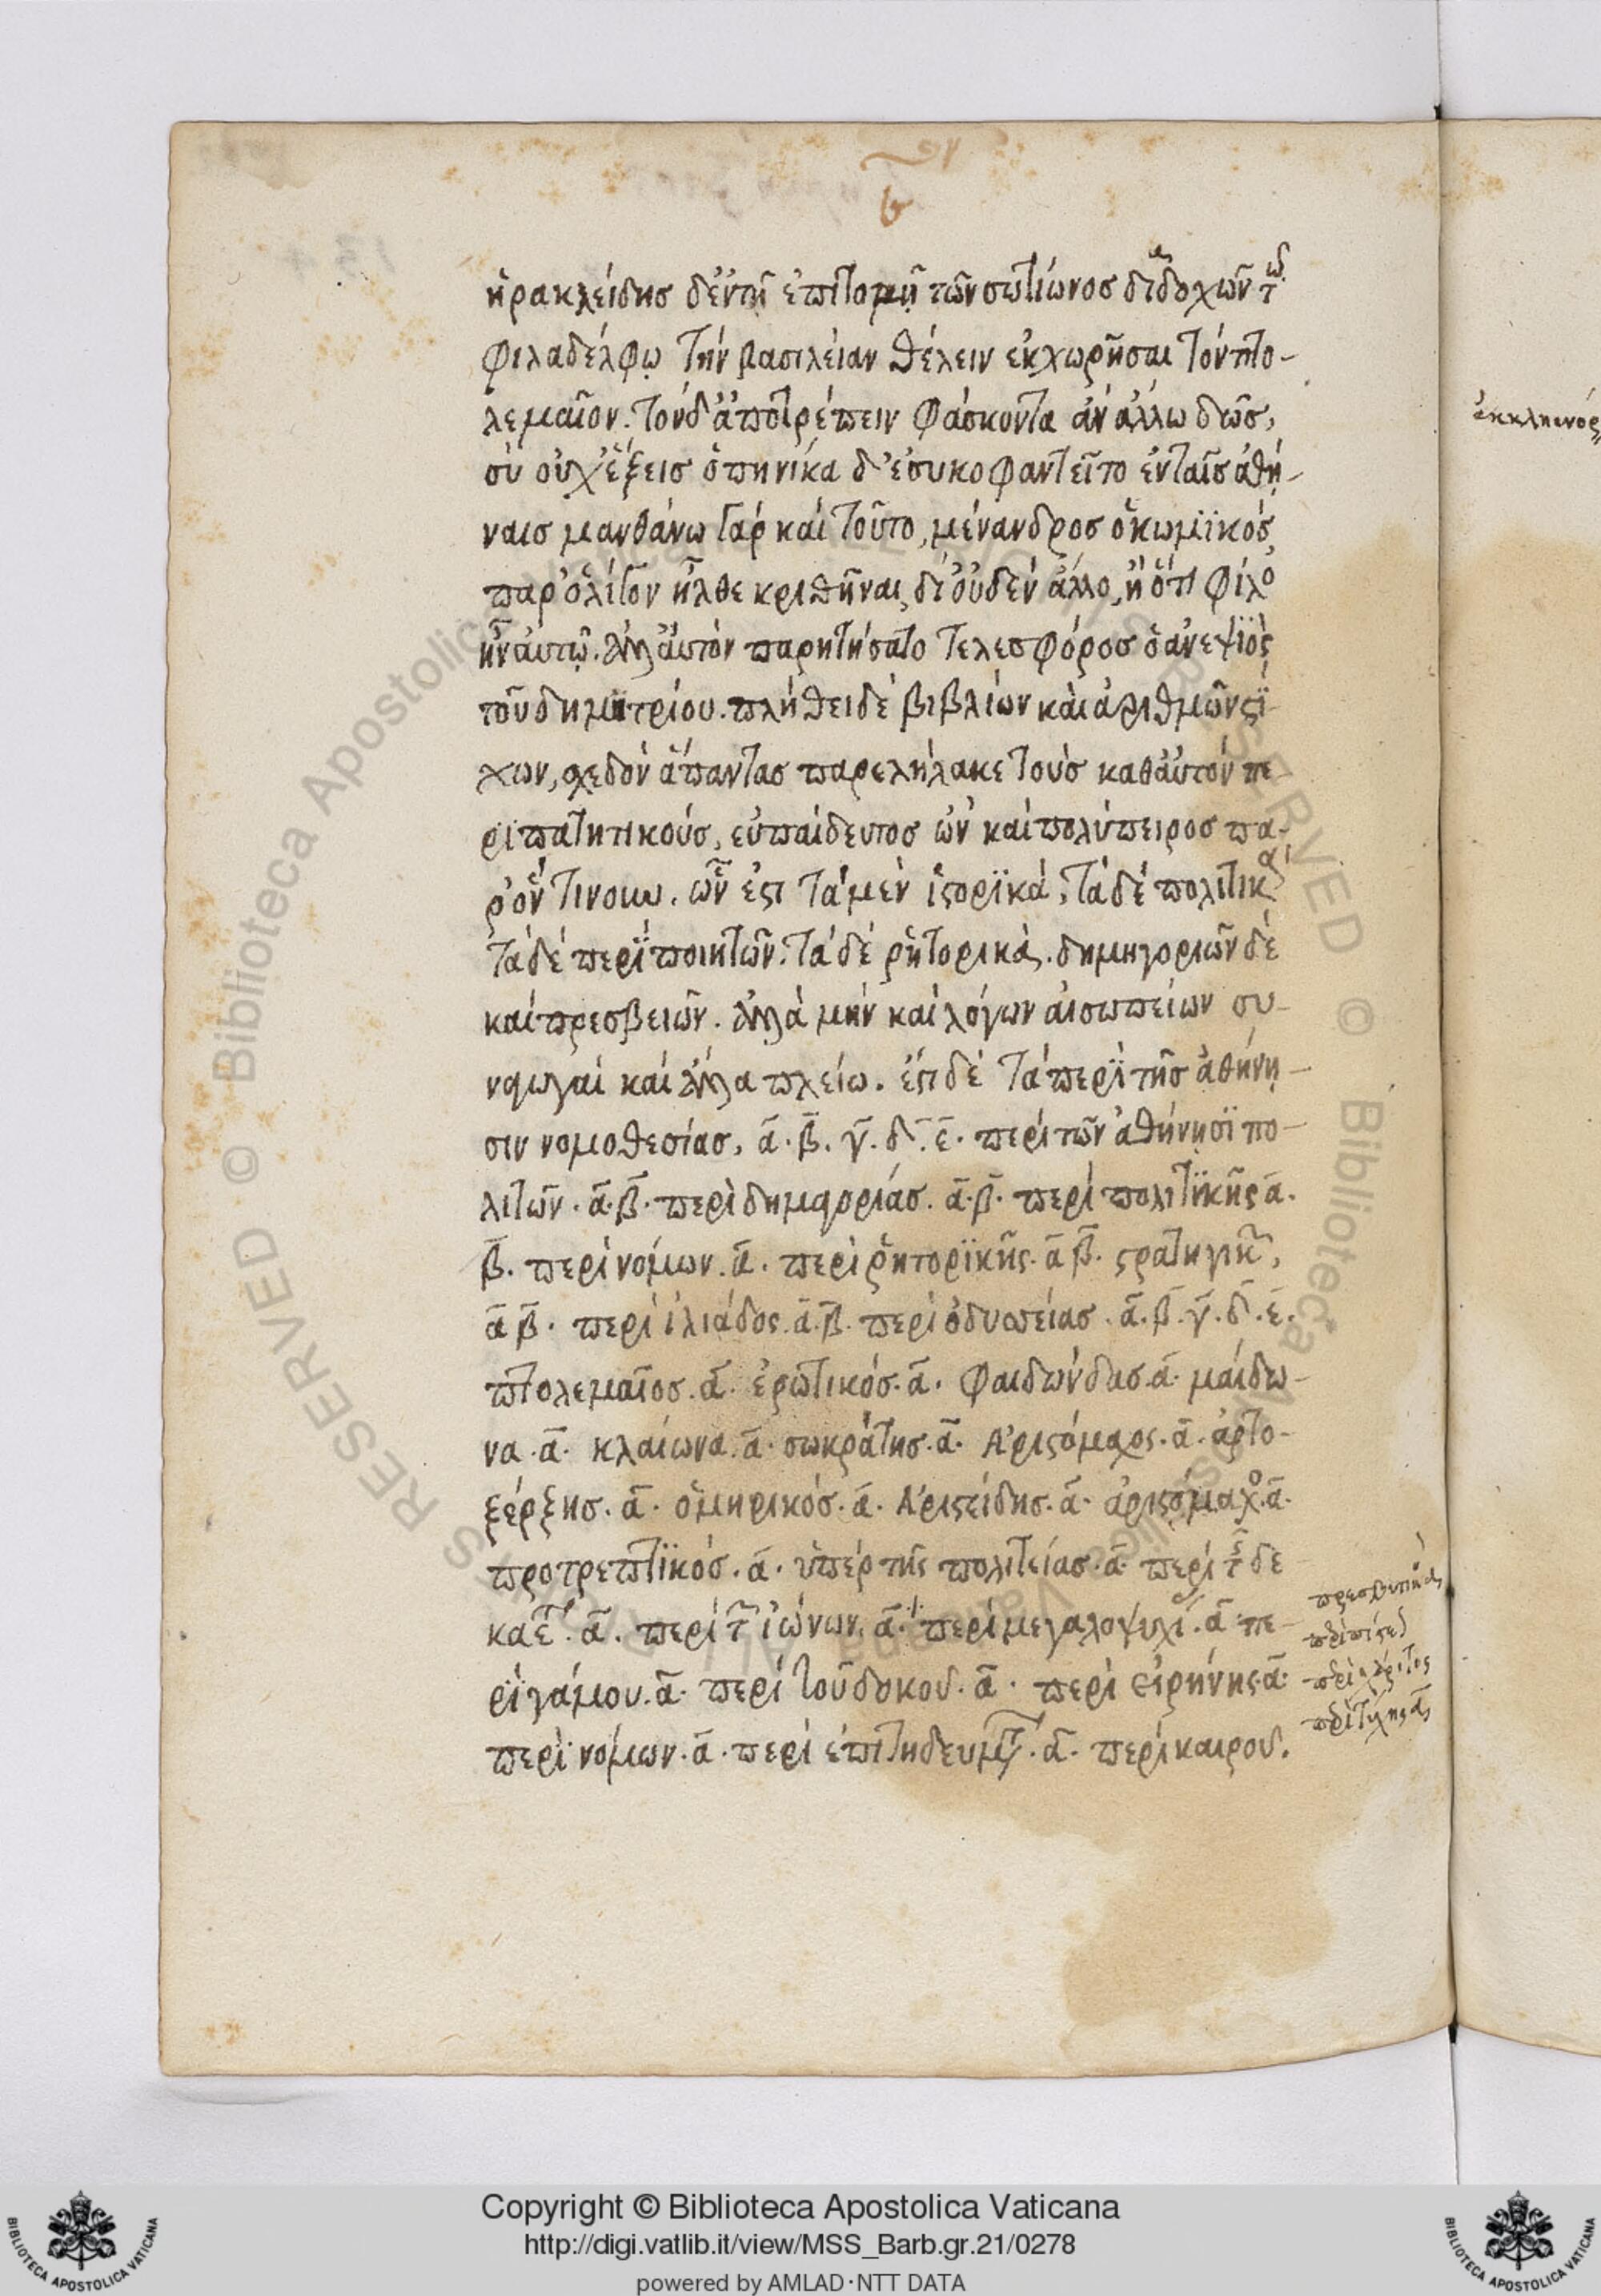 ἡρακλείδησ δ' ἐν τῇ ἐπιτομῇ τῶν σωτίωνοσ διαδοχῶν τῶ
φιλαδέλφῳ τὴν βασιλείαν θέλειν ἐκχωρῆσαι τὸν πτο-
λεμαῖον. τὸν δ' ἀποτρέπειν φάσκοντα ἂν ἄλλω δῶσ,
σὺ οὐχ ἕξεισ ὁπηνίκα δ' ἐσυκοφαντεῖτο ἐν ταῖσ ἀθή-
ναισ μανθάνω γὰρ καὶ τοῦτο, μένανδροσ ὁ κωμϊκὸς
παρ' ὀλίγον ἦλθε κριθῆναι, δι' οὐδὲν ἄλλο, ἢ ὅτι φίλο
ἦν αὐτῷ. ἀλλ' αὐτὸν παρητήσατο τελεσφόροσ ὁ ἀνεψϊὸς
τοῦ δημητρίου. πλήθει δὲ βιβλίων καὶ ἀριθμῶν ςί-
χων, σχεδὸν ἅπαντασ παρελήλακε τοὺσ καθ' αὐτὸν πε
ρϊπατητικούσ, εὐπαίδευτοσ ὢν καὶ πολύπειροσ πα-
ρ' ὃν τινουν. ὧν ἐςι τὰ μὲν ἱςορϊκά, τὰ δὲ πολιτικά
τὰ δὲ περὶ ποιητῶν. τὰ δὲ ῥητορικά. δημηγοριῶν δὲ
καὶ πρεσβειῶν. ἀλλὰ μὴν καὶ λόγων αἰσωπείων συ-
ναγωγαὶ καὶ ἄλλα πλείω. ἔςι δὲ τὰ περὶ τῆσ ἀθήνη-
σιν νομοθεσίασ, α̅. β̅. γ̅. δ̅. ε̅. περὶ τῶν ἀθήνησϊ πο-
λιτῶν. α̅. β̅. περὶ δημαγορίάσ. α̅. β̅. περὶ πολιτϊκῆς α̅.
β̅. περὶ νόμων. α̅. περὶ ῥητορϊκῆς. α̅ β̅. ςρατηγικ,
α̅ β̅. περὶ ἰλιάδος. α̅. β̅. περὶ ὀδυσσείασ. α̅. β̅. γ̅. δ̅. ε̅.
πτολεμαῖοσ. α̅. ἐρωτικόσ. α̅. φαιδώνδασ. α̅. μαίδω-
να. α̅. κλαίωνα. α̅. σωκράτησ. α̅. Ἀριςόμαχος. α̅. ἀρτο-
ξέρξησ. α̅. ὁμηρικόσ. α̅. Ἀριςτείδησ. α̅. ἀριςόμαχο. α̅.
προτρεπτϊκόσ. α̅. ὑπὲρ τῆς πολιτείασ. α̅. περὶ τῆς δε
καετ. α̅. περὶ τῶν ἰώνων. α̅. περὶ μεγαλοψυχί. α̅. πε-
ρϊ γάμου. α̅. περὶ τοῦ δοκοῦ. α̅. περὶ εἰρήνης. α̅.
περὶ νόμων. α̅. περὶ ἐπιτηδευμτ. α̅. περὶ καιροῦ.
πρεσβευτικὸς α̅
περὶ πίςεως
περὶ χάριτος
περὶ τύχης α̅